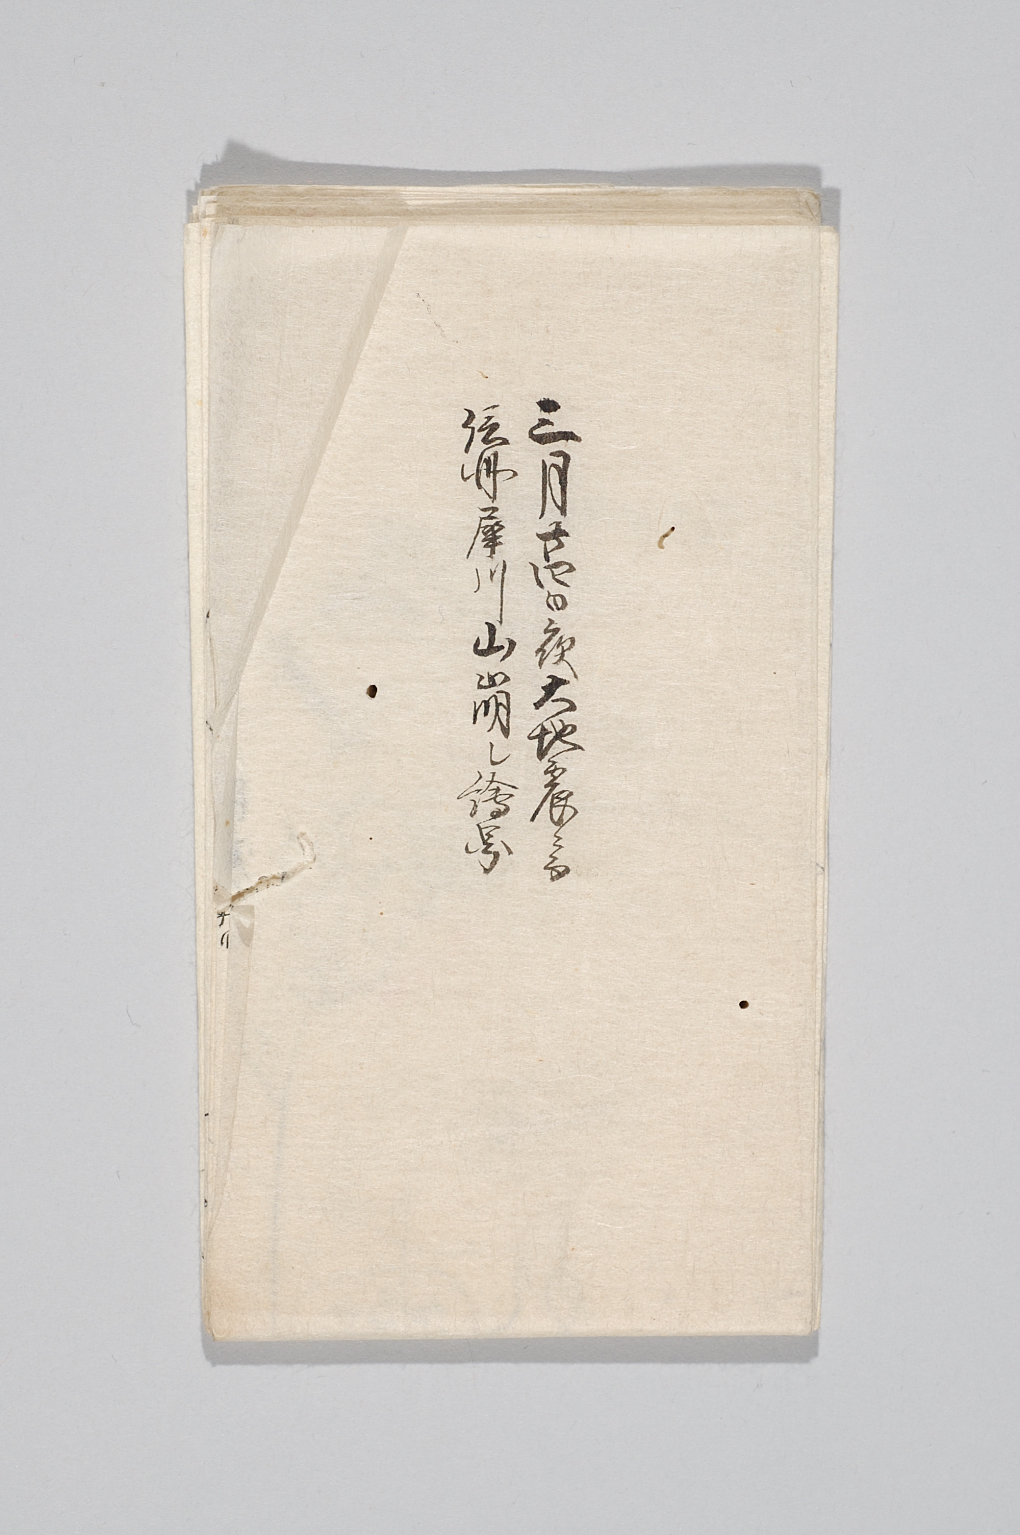 三月廿四日夜大地震ニ而
信州犀川山崩し絵図